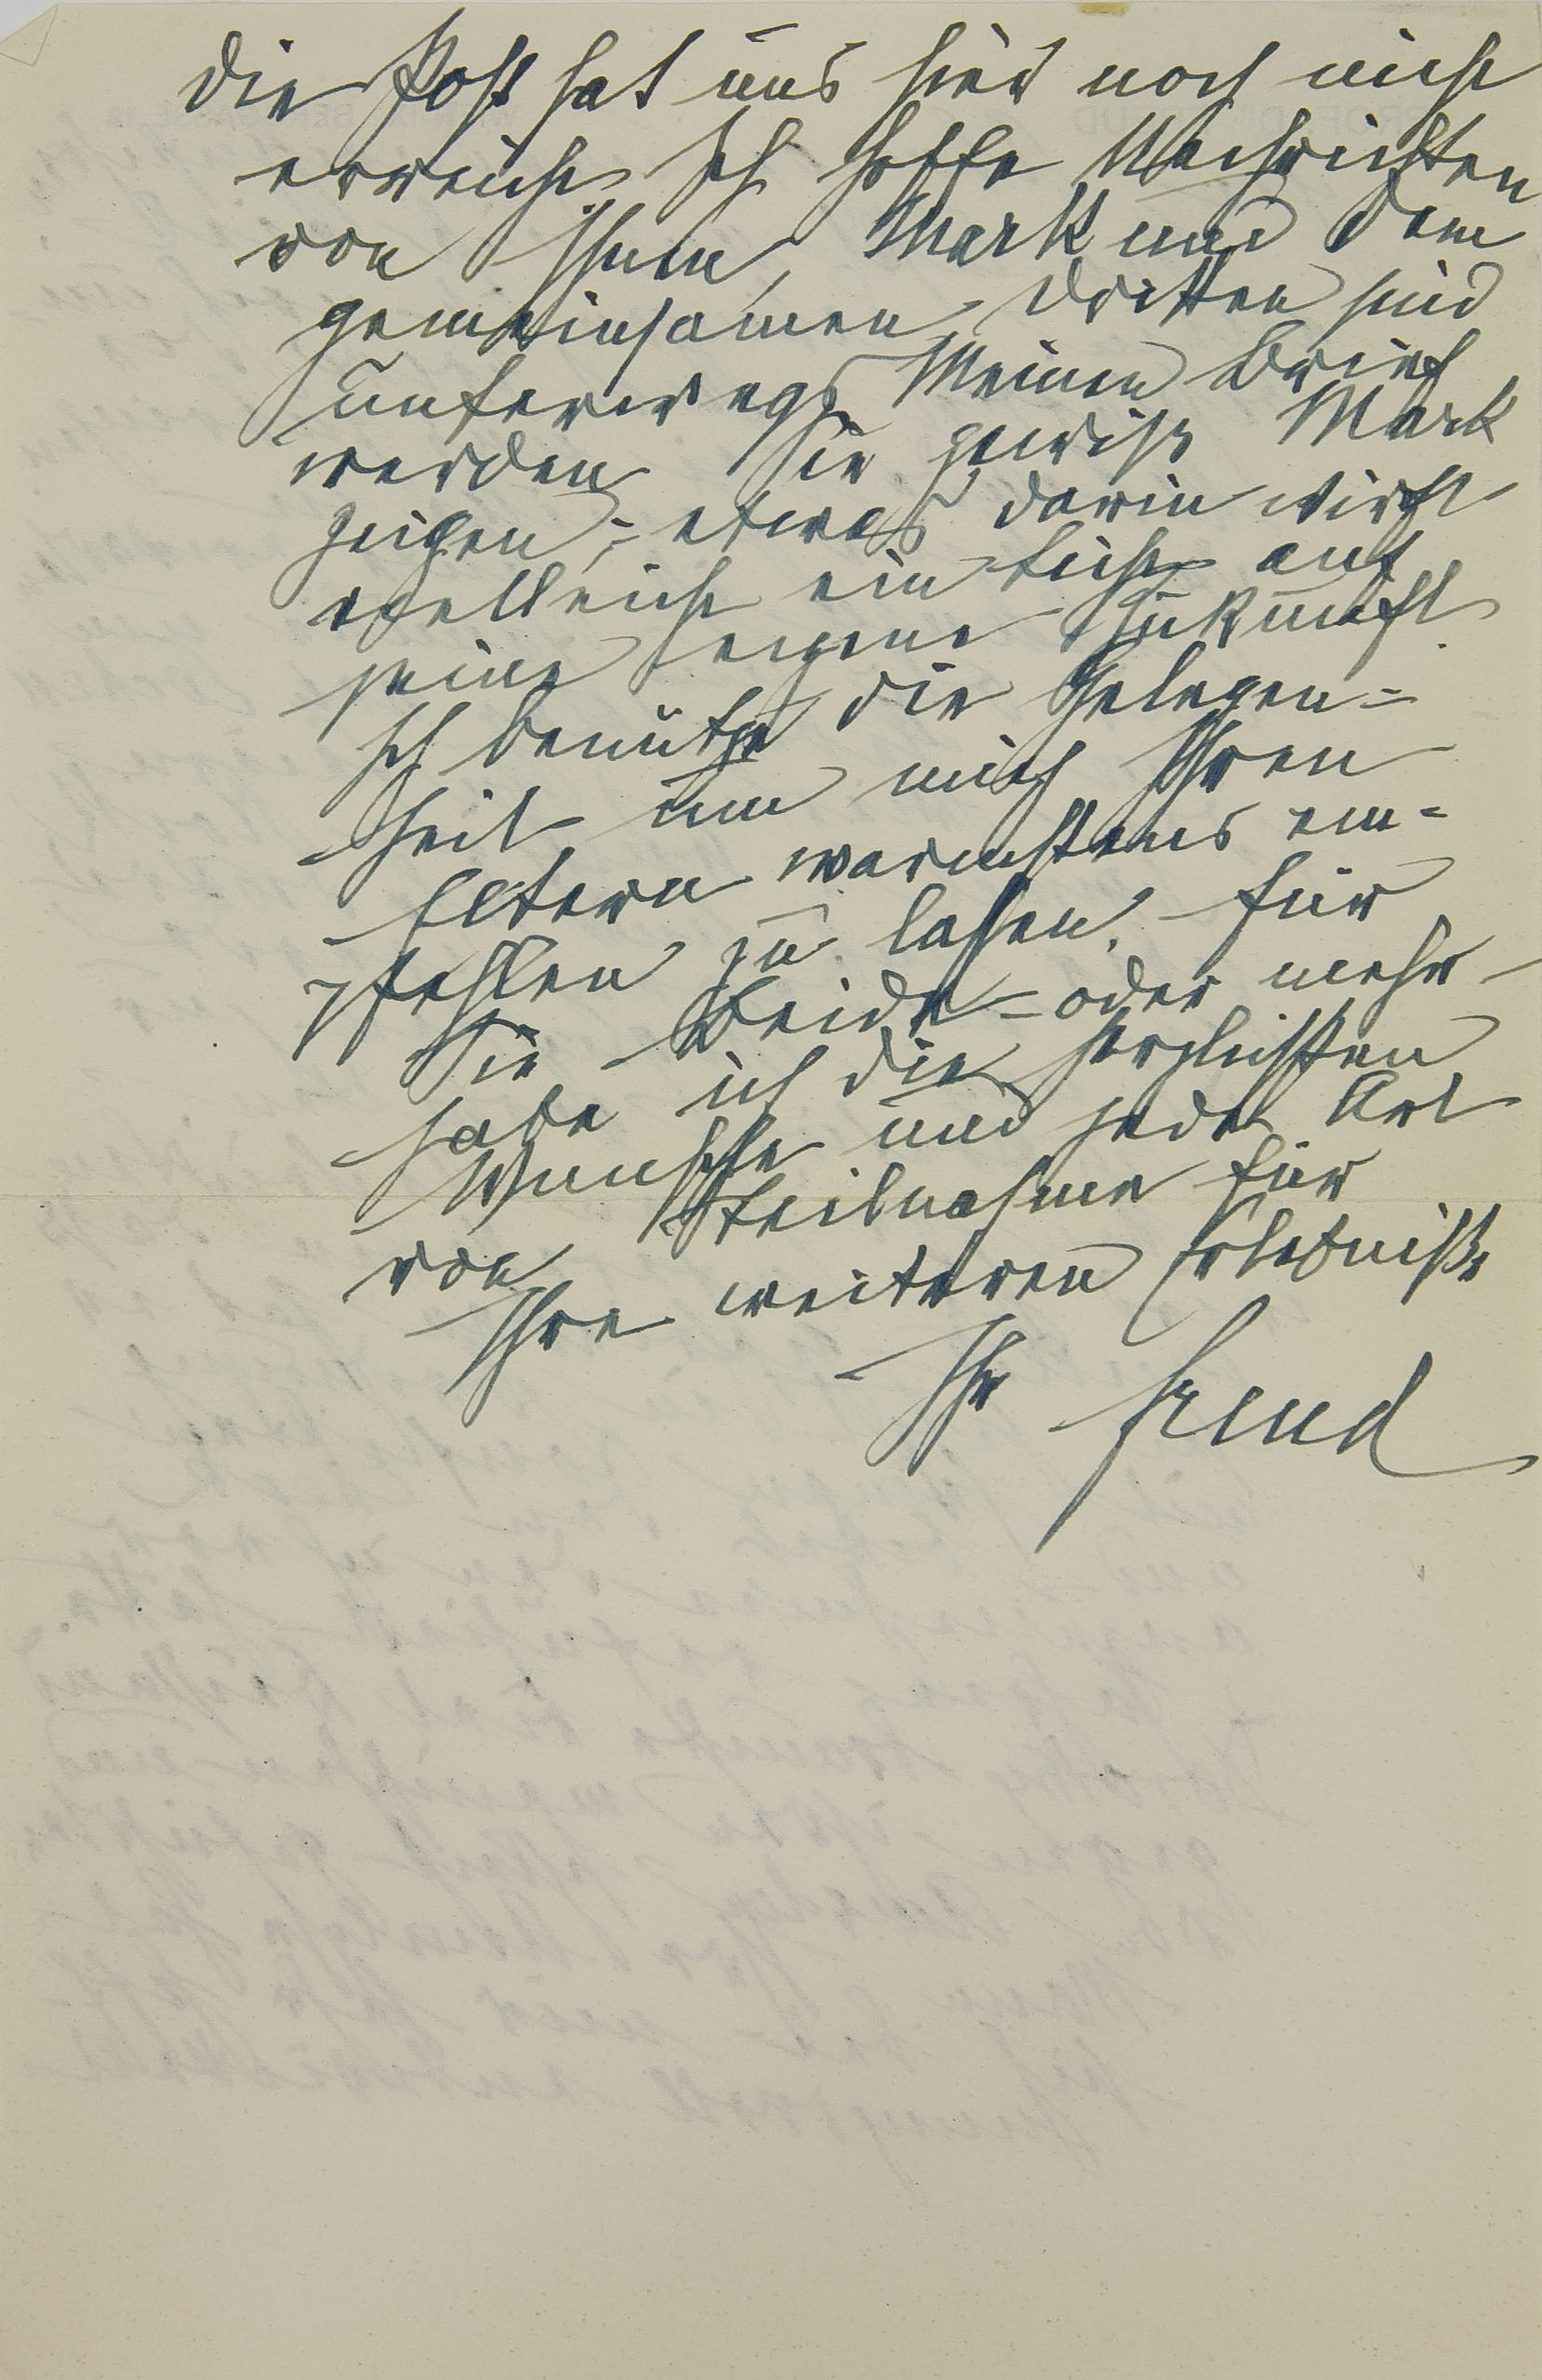 Die Post hat uns hier noch nicht
erreicht. Ich hoffe Nachrichten
von Ihnen, Mark und dem
gemeinsamen Dritten sind
unterwegs. Meinen Brief
werden Sie gewiß Mark
zeigen; etwas darin wirft
vielleicht ein Licht auf
seine eigene Zukunft.
Ich benütze die Gelegen=
heit um mich Ihren
Eltern warmstens em=
pfehlen zu lassen. Für
Sie Beide – oder mehr –
habe ich die herzlichsten
Wünsche und jede Art
von Teilnahme für
Ihre weiteren Erlebniße
Ihr Freud